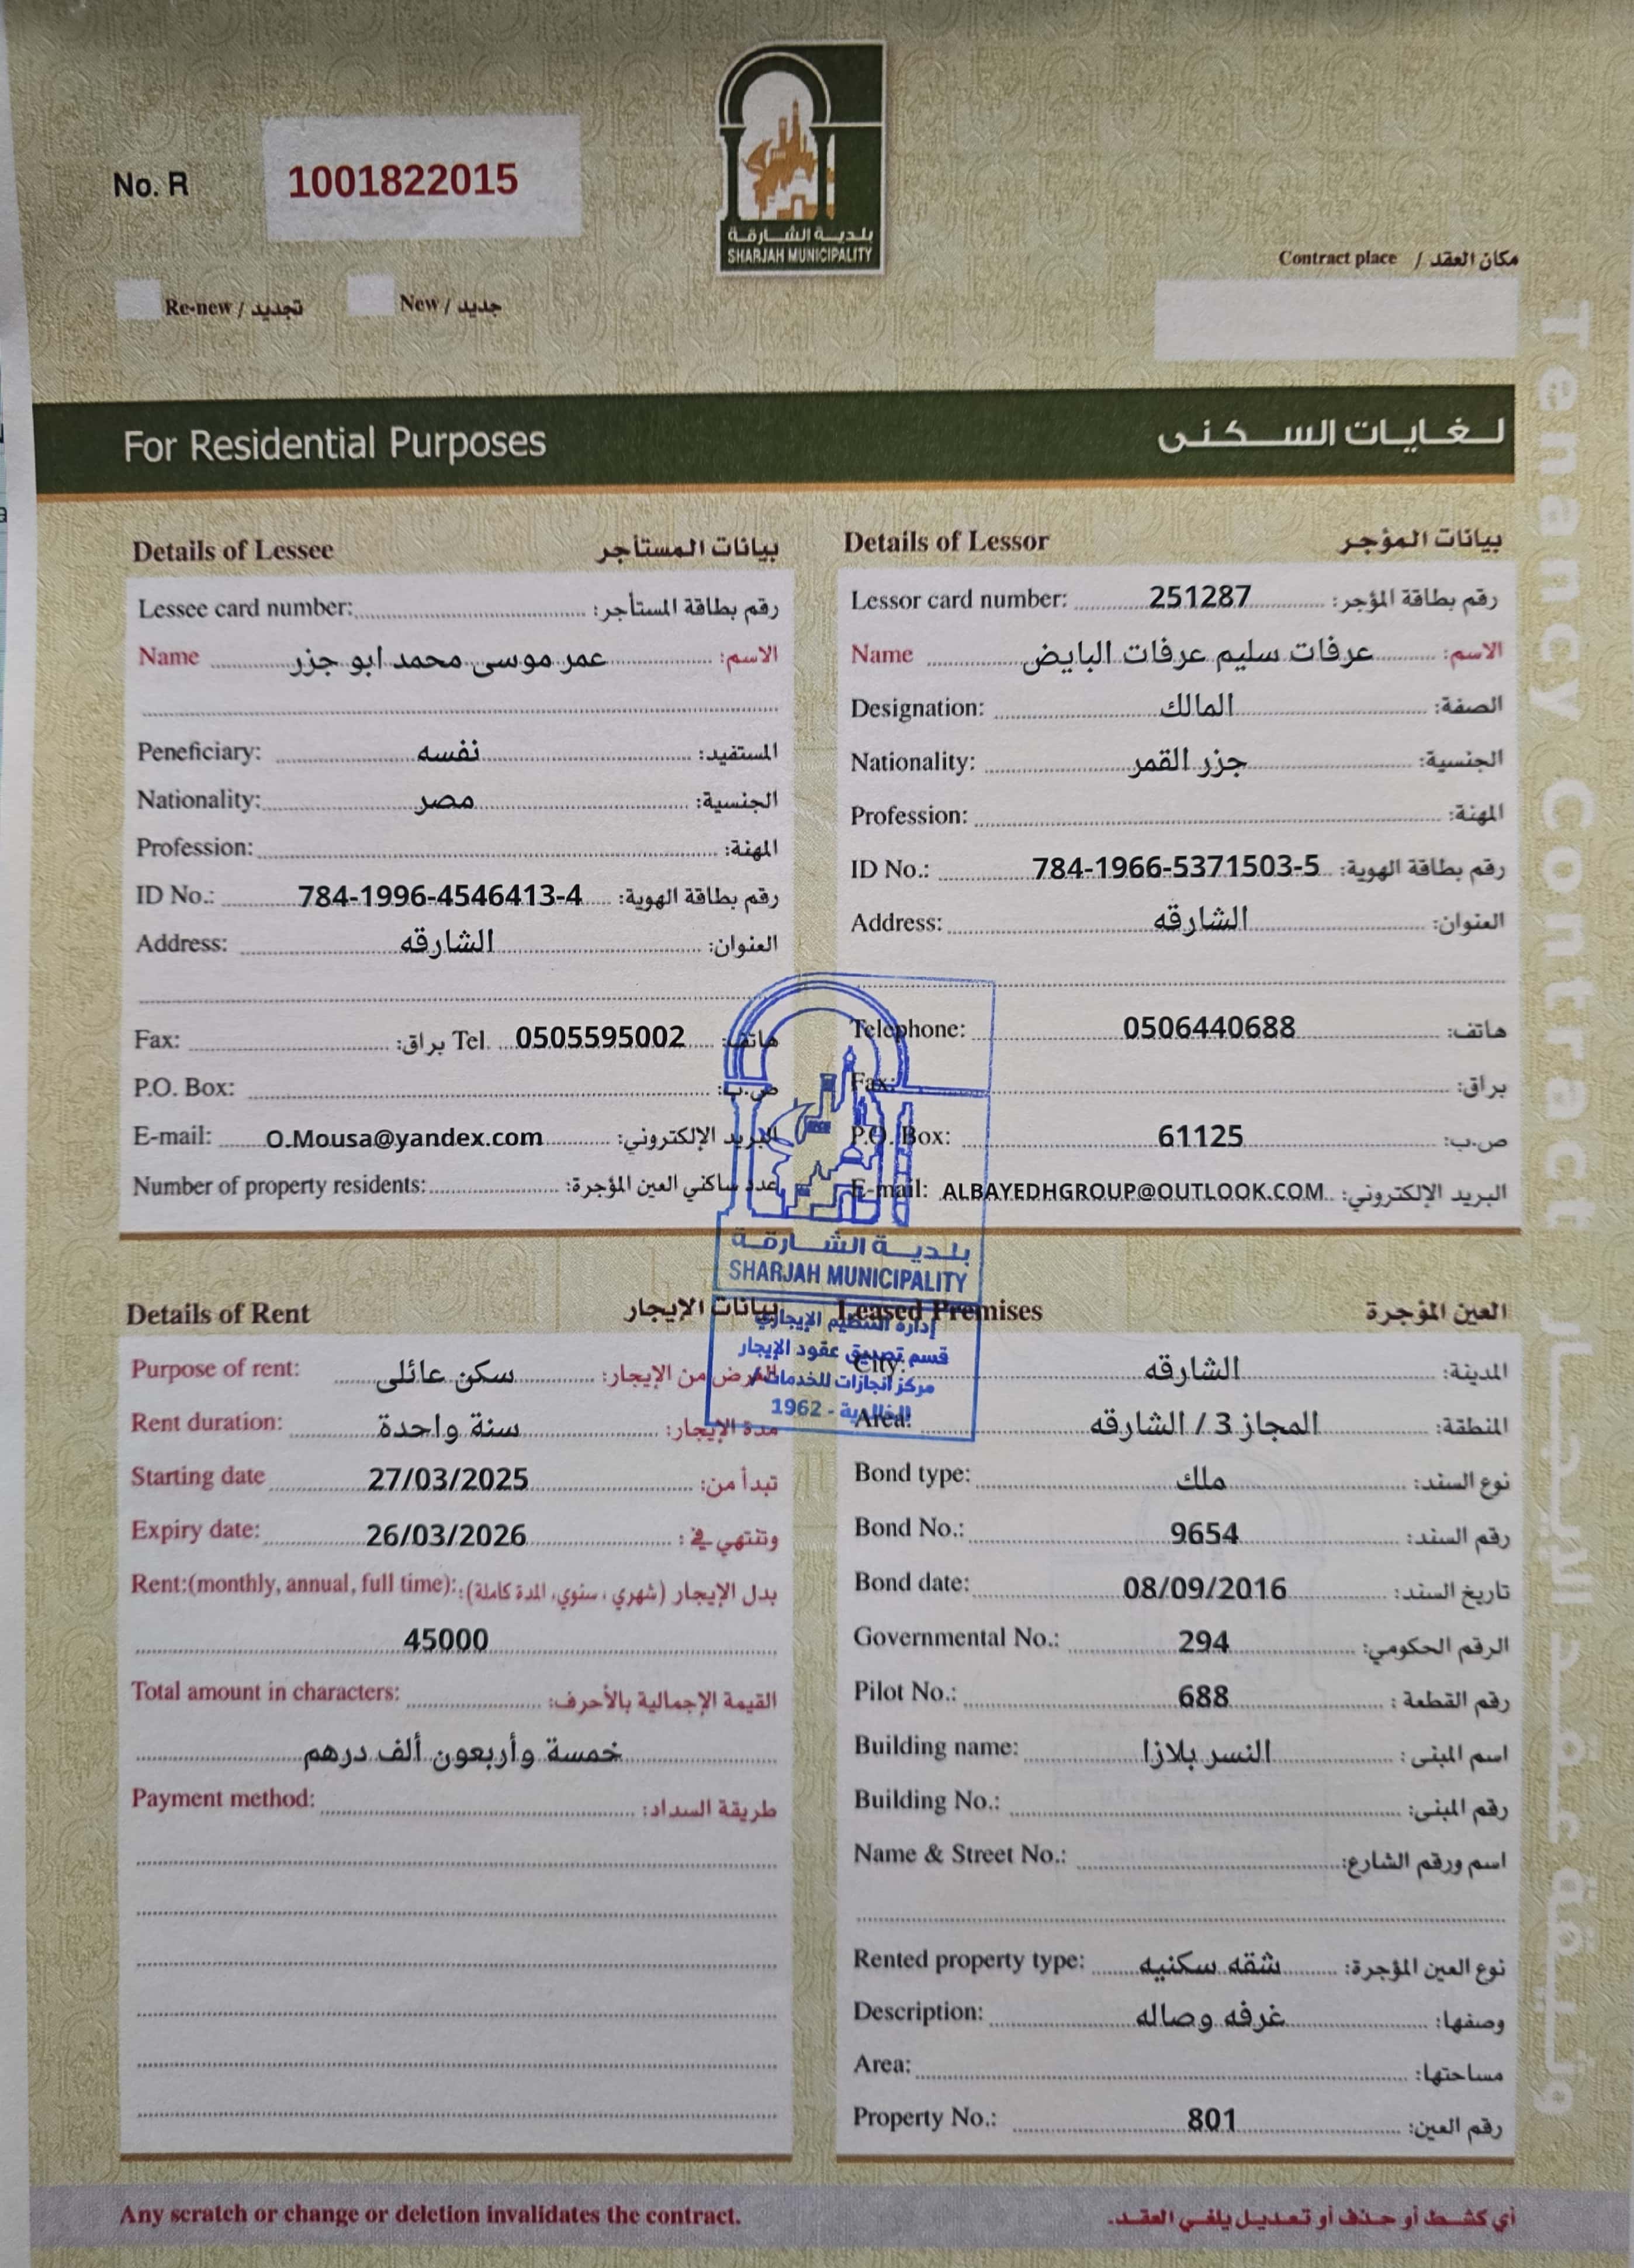 No. R 1001822015
بلدية الشارقة
SHARJAH MUNICIPALITY
Contract place / مكان العقد
Re-new / تجديد New / جديد
For Residential Purposes لغايات السكنى
Tenancy Contract
Details of Lessee بيانات المستأجر
Lessee card number: رقم بطاقة المستأجر:
Name عمر موسى محمد ابو جزر الاسم:
Peneficiary: نفسه المستفيد:
Nationality: مصر الجنسية:
Profession: المهنة:
ID No.: 784-1996-4546413-4 رقم بطاقة الهوية:
Address: الشارقه العنوان:
Fax: براق: Tel. 0505595002 هاتف:
P.O. Box: ص.ب:
E-mail: O.Mousa@yandex.com البريد الإلكتروني:
Number of property residents: عدد ساكني العين المؤجرة:
Details of Lessor بيانات المؤجر
Lessor card number: 251287 رقم بطاقة المؤجر:
Name عرفات سليم عرفات البايض الاسم:
Designation: المالك الصفة:
Nationality: جزر القمر الجنسية:
Profession: المهنة:
ID No.: 784-1966-5371503-5 رقم بطاقة الهوية:
Address: الشارقه العنوان:
Telephone: 0506440688 هاتف:
Fax: براق:
P.O. Box: 61125 ص.ب:
E-mail: ALBAYEDHGROUP@OUTLOOK.COM البريد الإلكتروني:
بلدية الشارقة
SHARJAH MUNICIPALITY
إدارة التنظيم الإيجاري
قسم تصديق عقود الإيجار
مركز انجازات للخدمات /
1962 -
Details of Rent بيانات الإيجار
Purpose of rent: سكن عائلى الغرض من الإيجار:
Rent duration: سنة واحدة مدة الإيجار:
Starting date 27/03/2025 تبدأ من:
Expiry date: 26/03/2026 وتنتهي في:
Rent:(monthly, annual, full time): بدل الإيجار (شهري، سنوي، المدة كاملة):
45000
Total amount in characters: القيمة الإجمالية بالأحرف:
خمسة وأربعون ألف درهم
Payment method: طريقة السداد:
Leased Premises العين المؤجرة
City: الشارقه المدينة:
Area: المجاز 3 / الشارقه المنطقة:
Bond type: ملك نوع السند:
Bond No.: 9654 رقم السند:
Bond date: 08/09/2016 تاريخ السند:
Governmental No.: 294 الرقم الحكومي:
Pilot No.: 688 رقم القطعة:
Building name: النسر بلازا اسم المبنى:
Building No.: رقم المبنى:
Name & Street No.: اسم ورقم الشارع:
Rented property type: شقه سكنيه نوع العين المؤجرة:
Description: غرفه وصاله وصفها:
Area: مساحتها:
Property No.: 801 رقم العين:
Any scratch or change or deletion invalidates the contract. أي كشط أو حذف أو تعديل يلغي العقد.